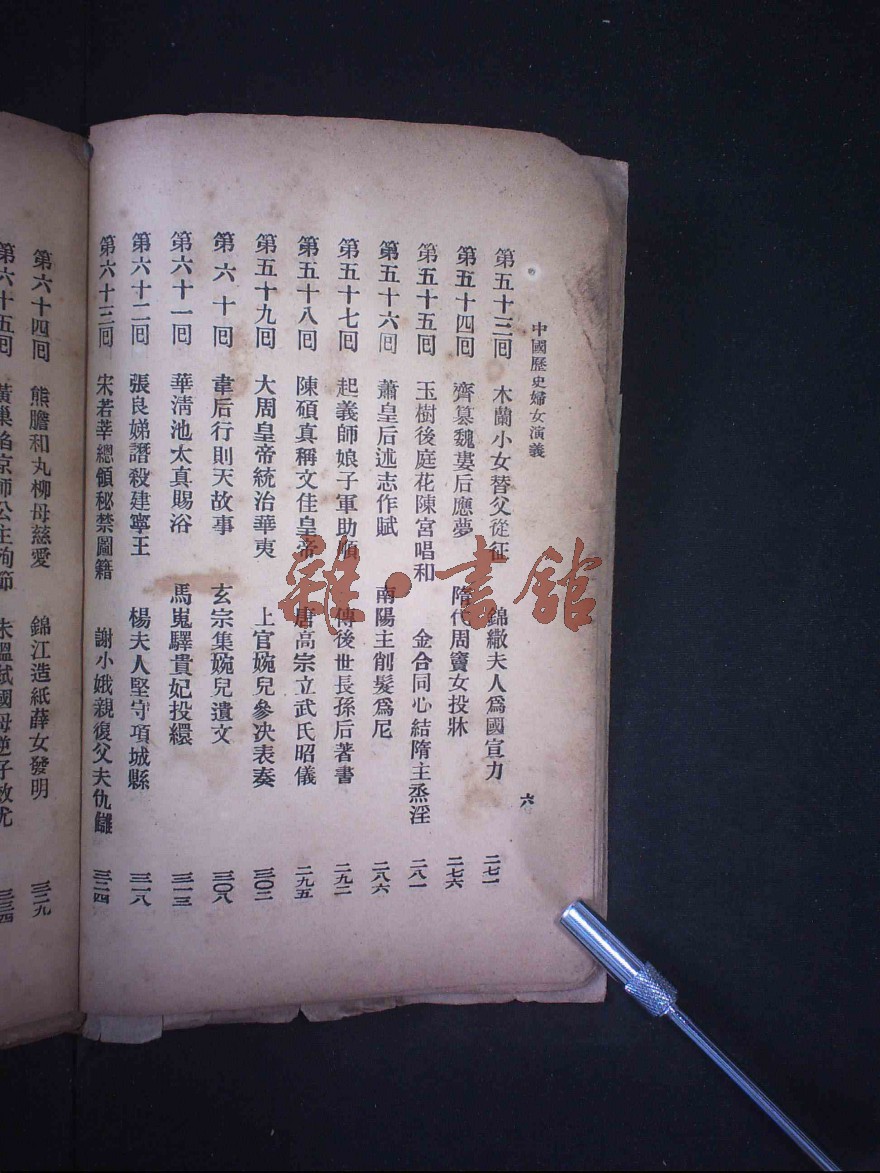 中國歷史婦女演義
六
第五十三回 木蘭小女替父從征 錦繖夫人爲國宣力 二七一
第五十四回 齊篡魏婁后應夢 隋代周竇女投牀 二七六
第五十五回 玉樹後庭花陳宮唱和 金合同心結隋主烝淫 二八一
第五十六回 蕭皇后述志作賦 南陽主削髮爲尼 二八六
第五十七回 起義師娘子軍助順 傳後世長孫后著書 二九二
第五十八回 陳碩真稱文佳皇帝 唐高宗立武氏昭儀 二九五
第五十九回 大周皇帝統治華夷 上官婉兒參決表奏 三〇二
第六十回 韋后行則天故事 玄宗集婉兒遺文 三〇八
第六十一回 華淸池太真賜浴 馬嵬驛貴妃投繯 三一三
第六十二回 張良娣譖殺建寧王 楊夫人堅守項城縣 三一八
第六十三回 宋若莘總領秘禁圖籍 謝小娥親復父夫仇讎 三二四
第六十四回 熊膽和丸柳母慈愛 錦江造紙薛女發明 三二九
第六十五回 黃巢陷京師公主殉節 朱溫弑國母逆子效尤 三三四
雜·書館